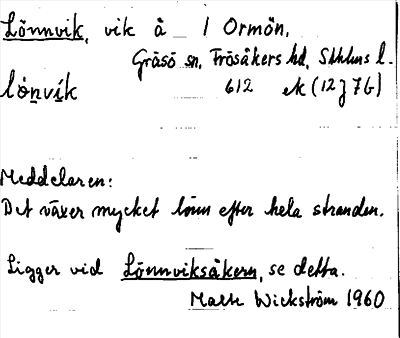 Lönnvik, vik å I Ormön,
Gräsö sn, Frösåkers hd, Sthlms l.
lónvík 612 ek (12J7b)
Meddelaren:
Det växer mycket lönn efter hela stranden.
Ligger vid Lönnviksåkern, se detta.
Malte Wickström 1960